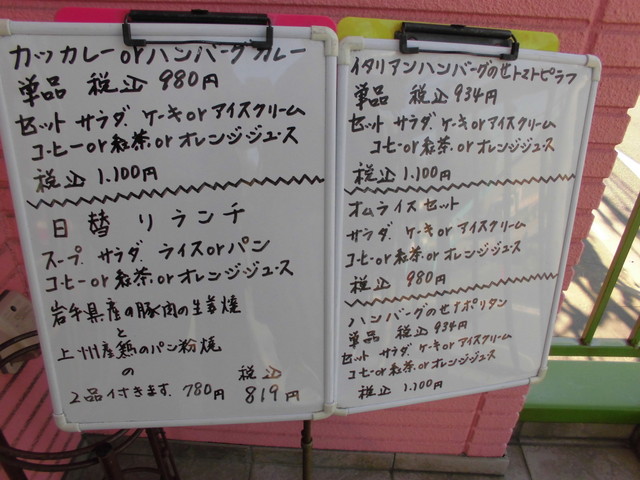 カツカレーorハンバーグカレー
単品 税込 980円
セット サラダ ケーキorアイスクリーム
コーヒーor紅茶.orオレンジジュース
税込 1.100円
日替りランチ
スープ サラダ ライスorパン
コーヒーor紅茶.orオレンジジュース
岩手県産の豚肉の生姜焼
と
上州産鶏のパン粉焼
の
2品付きます. 780円 税込 819円
イタリアンハンバーグのせトマトピラフ
単品 税込 934円
セット サラダ ケーキorアイスクリーム
コーヒーor紅茶.orオレンジジュース
税込 1.100円
オムライスセット
サラダ ケーキorアイスクリーム
コーヒーor紅茶.orオレンジジュース
税込 980円
ハンバーグのせナポリタン
単品 税込 934円
セット サラダ ケーキorアイスクリーム
コーヒーor紅茶.orオレンジジュース
税込 1.100円